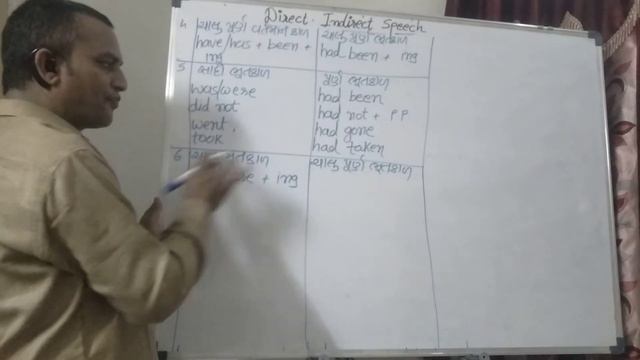 Direct. Indirect Speech
4 ચાલુ પૂર્ણ વર્તમાનકાળ
have/has + been +
ing
ચાલુ પૂર્ણ ભૂતકાળ
had been + ing
5 સાદો ભૂતકાળ
was/were
did not
went,
took
પૂર્ણ ભૂતકાળ
had been
had not + PP
had gone
had taken
6 ભૂતકાળ
+ ing
ચાલુ પૂર્ણ ભૂતકાળ